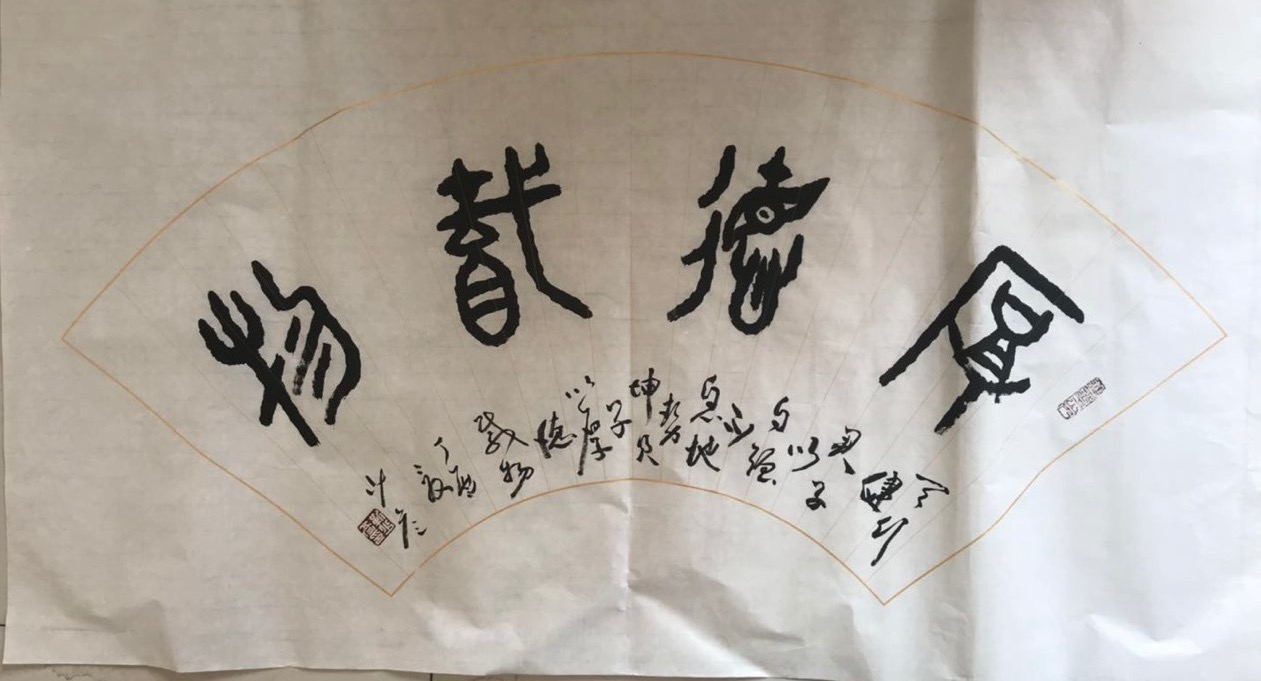 厚德載物
天
健行
君
以子
自强
不
息地
势
坤君
子
以厚
德
载物
丁酉